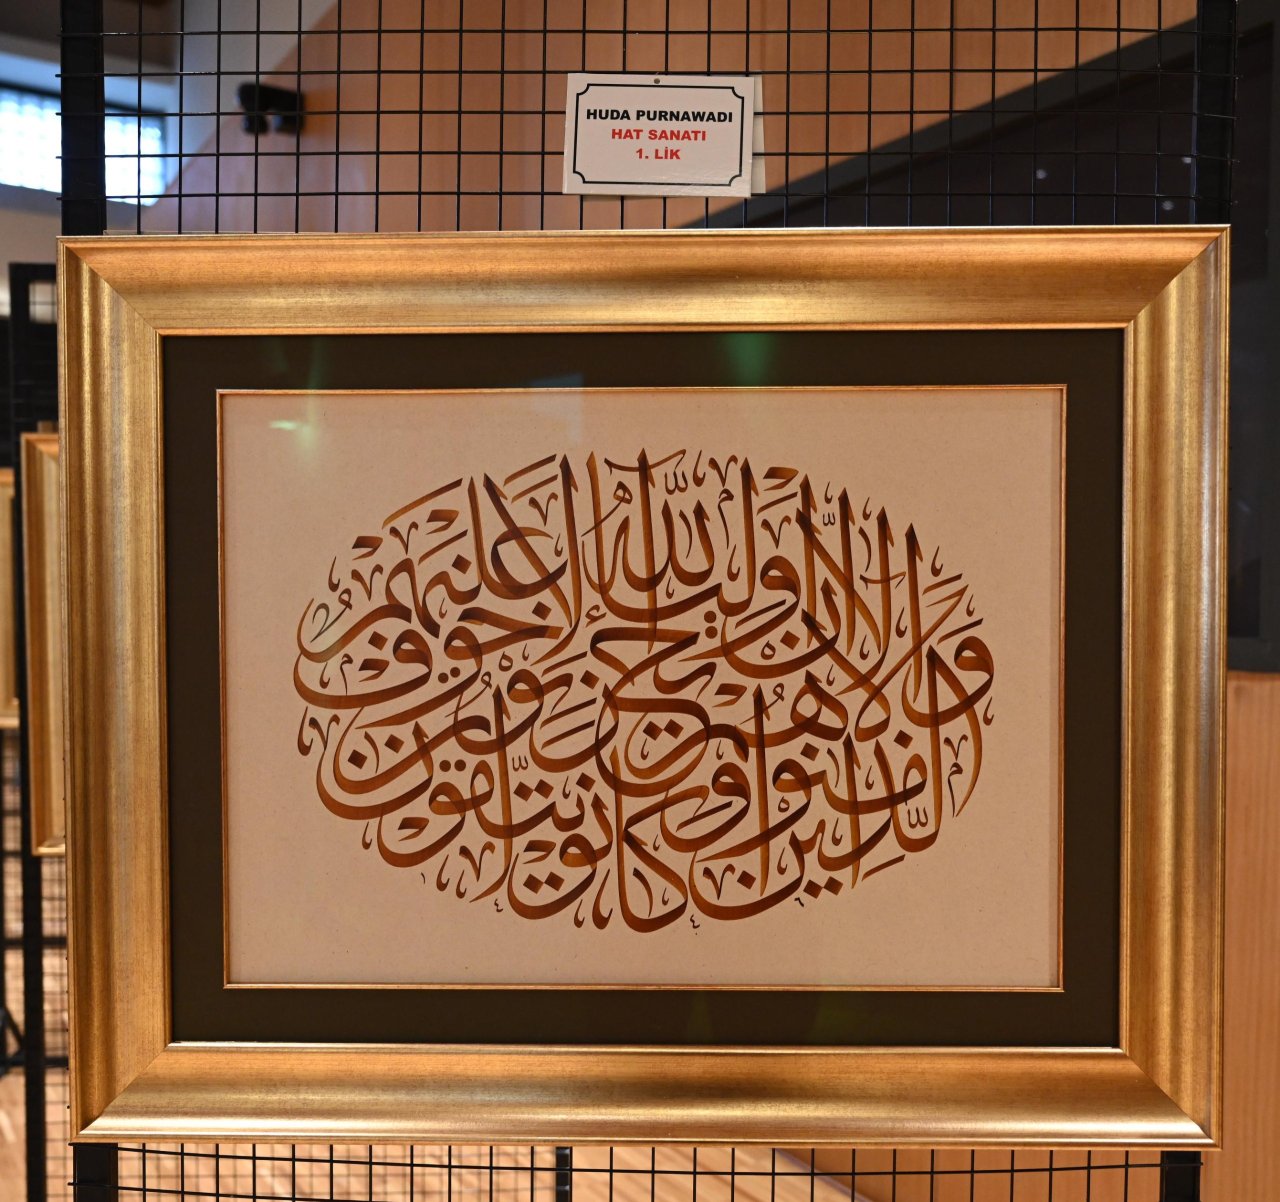 HUDA PURNAWADI
HAT SANATI
1. LİK
الا ان اولياء الله لا خوف عليهم
ولا هم يحزنون
الذين امنوا وكانوا يتقون